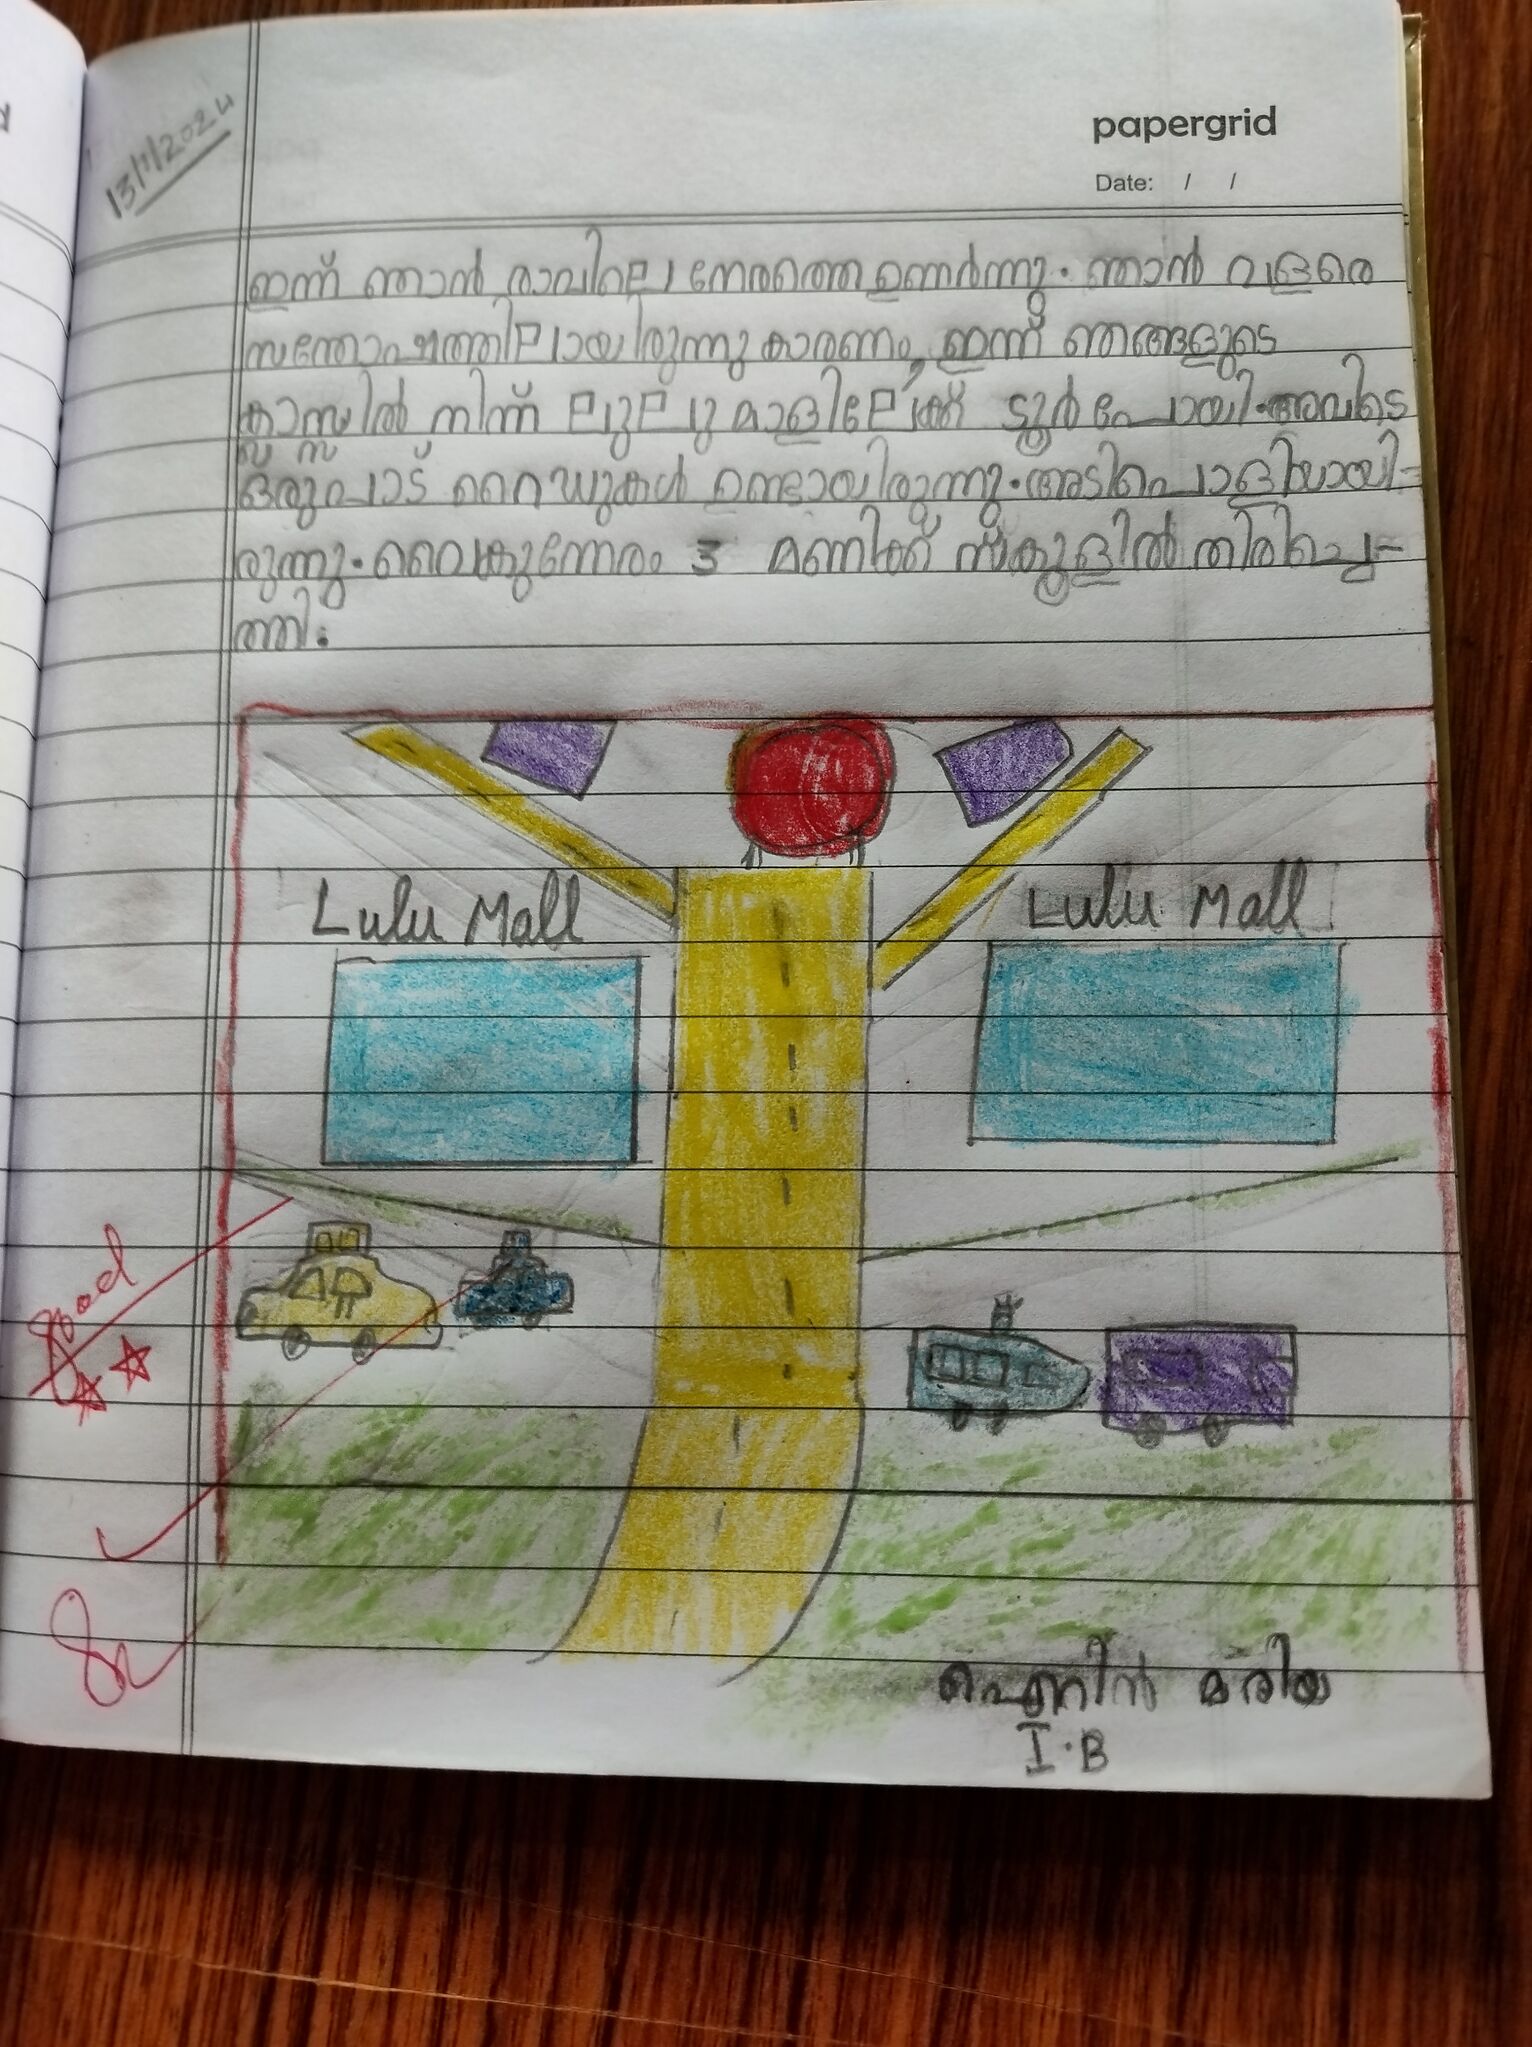 13/1/2024
papergrid
Date: / /
ഇന്ന് ഞാൻ രാവിലെ നേരത്തെ ഉണർന്നു. ഞാൻ വളരെ
സന്തോഷത്തിലായിരുന്നു കാരണം, ഇന്ന് ഞങ്ങളുടെ
ക്ലാസ്സിൽ നിന്ന് ലുലു മാളിലേക്ക് ടൂർ പോയി. അവിടെ
ഒരുപാട് റൈഡുകൾ ഉണ്ടായിരുന്നു. അടിപൊളിയായി-
രുന്നു. വൈകുന്നേരം 3 മണിക്ക് സ്കൂളിൽ തിരിച്ചെ-
ത്തി.
Lulu Mall
Lulu Mall
good
ഐറിൻ മരിയ
I.B